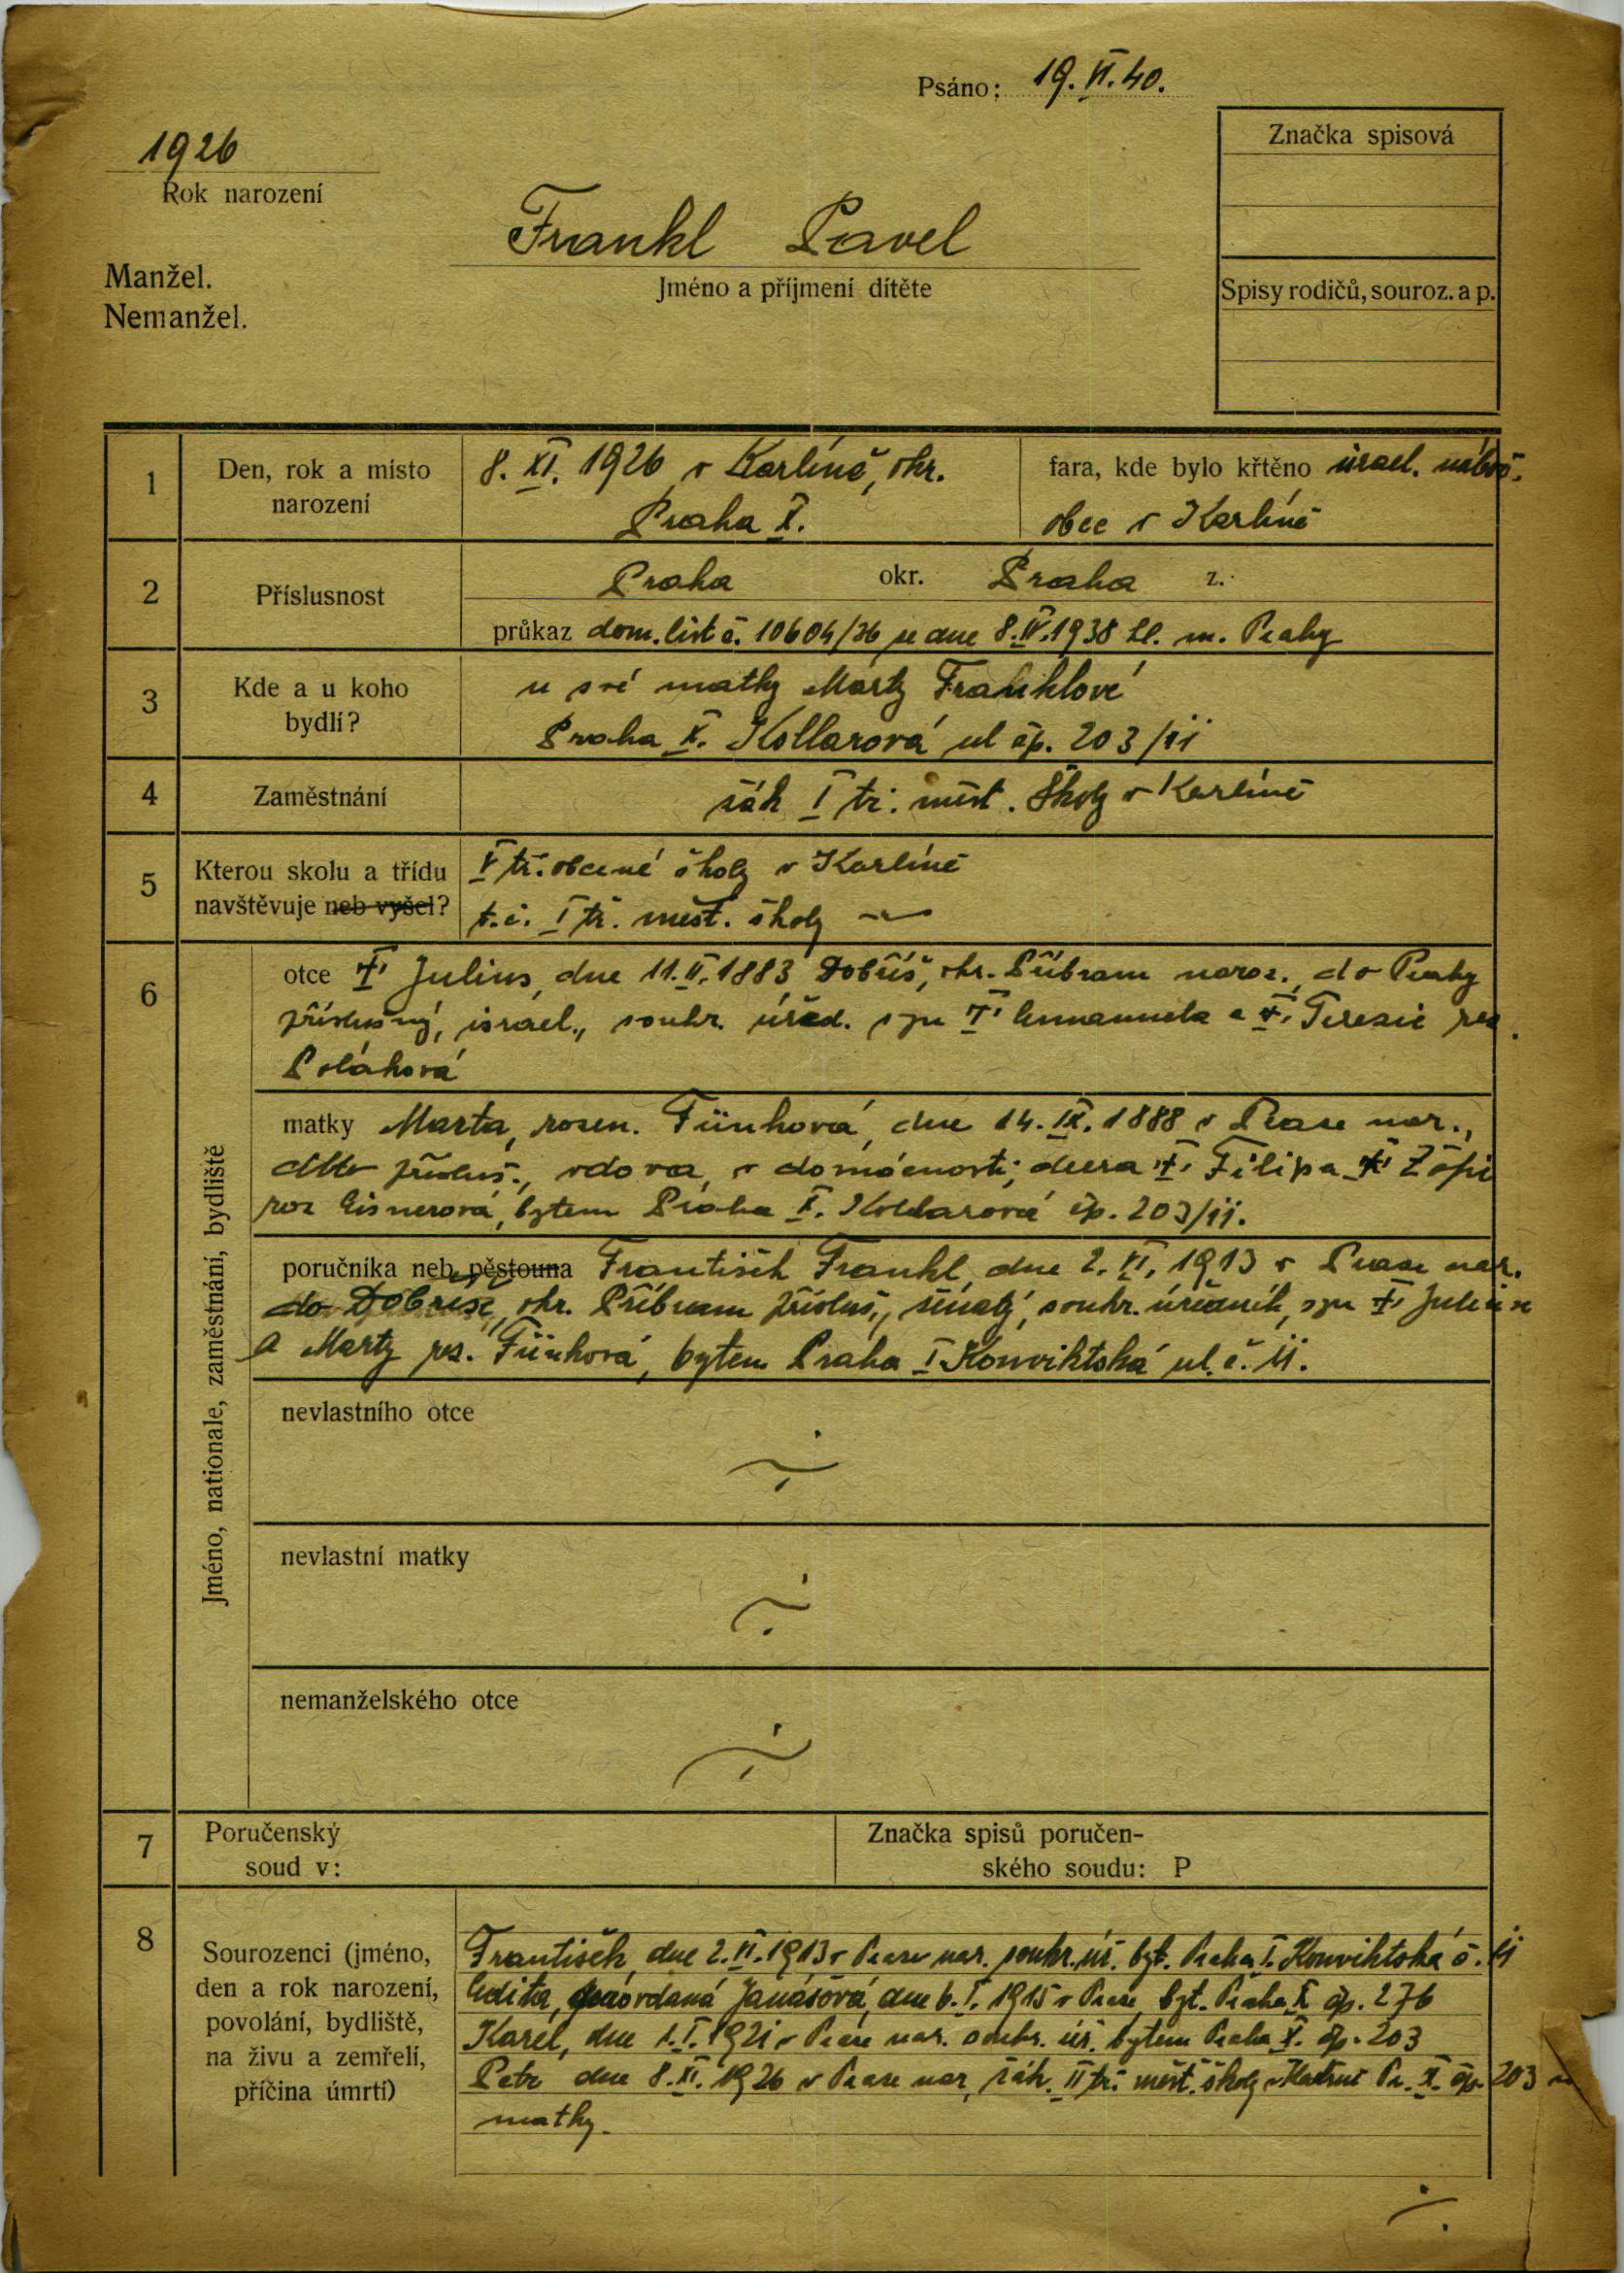 Psáno: 19. VI. 40.
1926
Rok narození
Značka spisová
Frankl Pavel
Jméno a příjmení dítěte
Manžel.
Nemanžel.
Spisy rodičů, souroz. a p.
1
Den, rok a místo
narození
8. XI. 1926 v Karlíně, okr.
Praha X.
fara, kde bylo křtěno israel. nábož.
obce v Karlíně
2
Příslusnost
Praha okr. Praha z.
průkaz dom. list č. 10604/36 ze dne 8. IV. 1938 hl. m. Prahy
3
Kde a u koho
bydlí?
u své matky Marty Franklové
Praha X. Kollarová ul čp. 203/II
4
Zaměstnání
žák I tř. měst. školy v Karlíně
5
Kterou skolu a třídu
navštěvuje neb vyšel?
V tř. obecné školy v Karlíně
t. č. I tř. měst. školy
6
Jméno, nationale, zaměstnání, bydliště
otce Julius, dne 11. II. 1883 Dobříš, okr. Příbram naroz., do Prahy
příslušný, israel., soukr. úřed. syn Emanuela a Terezie roz.
Poláková
matky Marta, rozen. Fürthová, dne 14. IX. 1888 v Praze nar.,
přísluš., vdova, v domácnosti, dcera Filipa Žofie
roz Eisnerová, bytem Praha X. Kollarová čp. 203/II.
poručníka neb pěstouna František Frankl, dne 2. VI. 1913 v Praze nar.
do Dobříše, okr. Příbram přísluš., ženatý, soukr. úředník, syn Julia
a Marty roz. Fürthová, bytem Praha I Konviktská ul. č. 11.
nevlastního otce
nevlastní matky
nemanželského otce
7
Poručenský
soud v:
Značka spisů poručen-
ského soudu: P
8
Sourozenci (jméno,
den a rok narození,
povolání, bydliště,
na živu a zemřelí,
příčina úmrtí)
František, dne 2. VI. 1913 v Praze nar. soukr. úř. byt. Praha I. Konviktská č. 11
Edita, provdaná Janášová, dne 6. I. 1915 v Praze, byt. Praha X čp. 276
Karel, dne 1. I. 1921 v Praze nar. soukr. úř. bytem Praha X. čp. 203
Petr dne 8. XI. 1926 v Praze nar, žák. II tř. měst. školy Pr. X. čp. 203 u
matky.